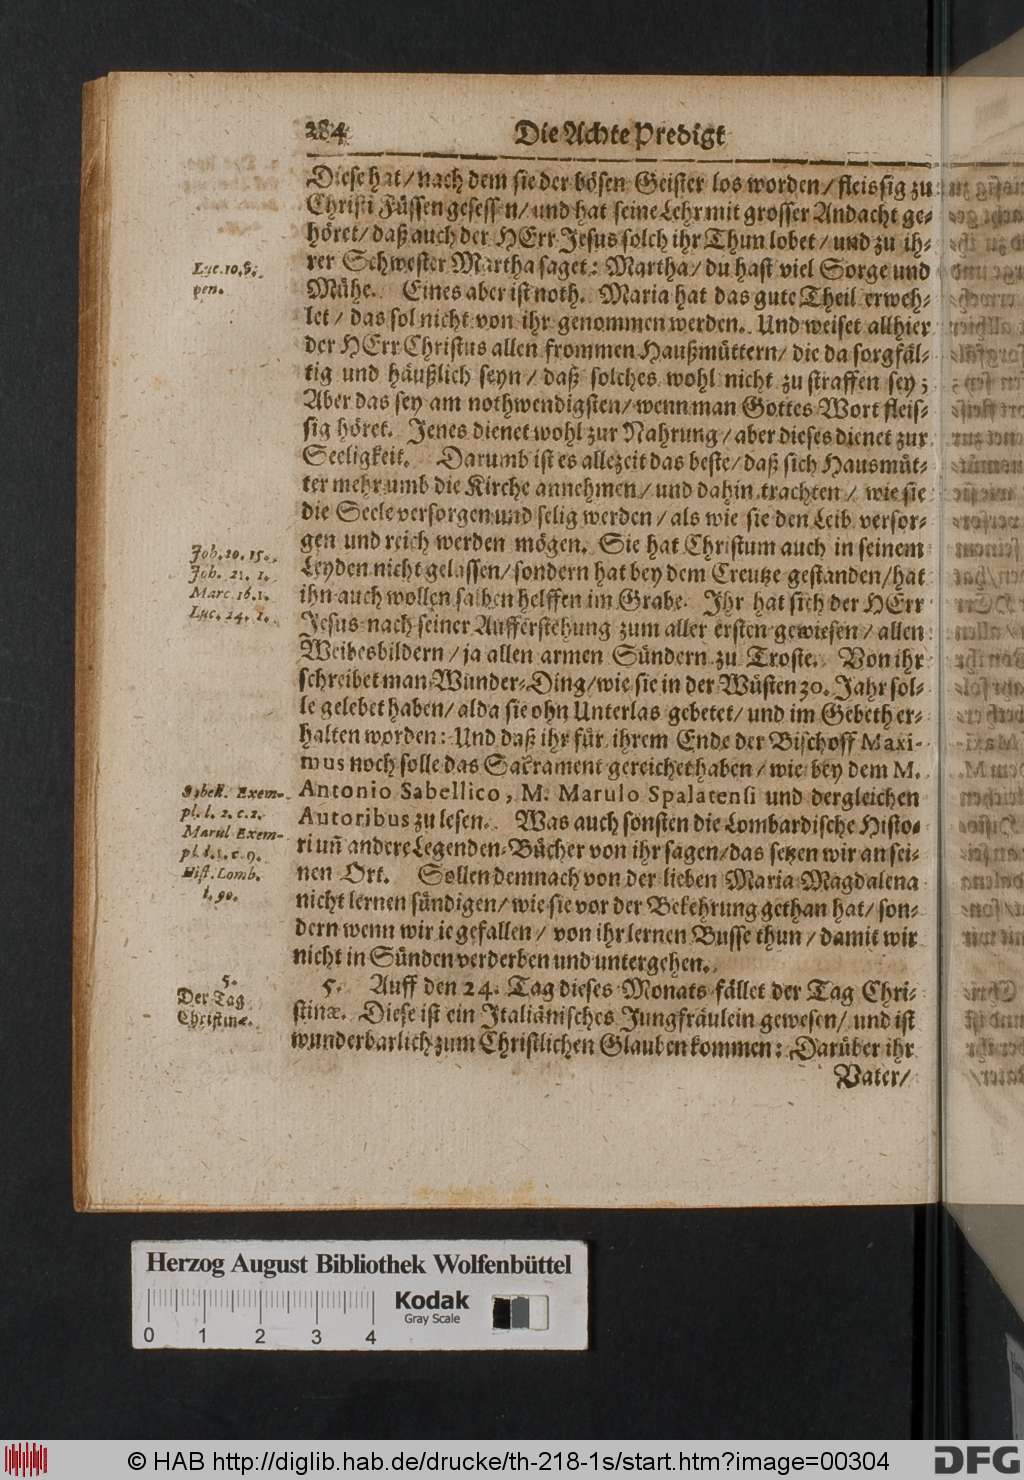 284 Die Achte Predigt
Diese hat / nach dem sie der bösen Geister los worden / fleissig zu
Christi Füssen gesessen / und hat seine Lehr mit grosser Andacht ge-
höret / daß auch der HErr Jesus solch ihr Thun lobet / und zu ih-
rer Schwester Martha saget: Martha / du hast viel Sorge und
Mühe. Eines aber ist noth. Maria hat das gute Theil erweh-
let / das sol nicht von ihr genommen werden. Und weiset allhier
der HErr Christus allen frommen Haußmüttern / die da sorgfäl-
tig und häußlich seyn / daß solches wohl nicht zu straffen sey;
Aber das sey am nothwendigsten / wenn man Gottes Wort fleis-
sig höret. Jenes dienet wohl zur Nahrung / aber dieses dienet zur
Seeligkeit. Darumb ist es allezeit das beste / daß sich Hausmüt-
ter mehr umb die Kirche annehmen / und dahin trachten / wie sie
die Seele versorgen und selig werden / als wie sie den Leib versor-
gen und reich werden mögen. Sie hat Christum auch in seinem
Leyden nicht gelassen / sondern hat bey dem Creutze gestanden / hat
ihn auch wollen salben helffen im Grabe. Ihr hat sich der HErr
Jesus nach seiner Aufferstehung zum aller ersten gewiesen / allen
Weibesbildern / ja allen armen Sündern zu Troste. Von ihr
schreibet man Wunder-Ding / wie sie in der Wüsten 30. Jahr sol-
le gelebet haben / alda sie ohn Unterlas gebetet / und im Gebeth er-
halten worden: Und daß ihr für ihrem Ende der Bischoff Maxi-
mus noch solle das Sacrament gereichet haben / wie bey dem M.
Antonio Sabellico, M. Marulo Spalatensi und dergleichen
Autoribus zu lesen. Was auch sonsten die Lombardische Histo-
ri uñ andere Legenden-Bücher von ihr sagen / das setzen wir an sei-
nen Ort. Sollen demnach von der lieben Maria Magdalena
nicht lernen sündigen / wie sie vor der Bekehrung gethan hat / son-
dern wenn wir ie gefallen / von ihr lernen Busse thun / damit wir
nicht in Sünden verderben und untergehen.
5. Auff den 24. Tag dieses Monats fället der Tag Chri-
stinæ. Diese ist ein Italiänisches Jungfräulein gewesen / und ist
wunderbarlich zum Christlichen Glauben kommen: Darüber ihr
Vater /
Luc. 10, 8.
pen.
Joh. 20. 15.
Joh. 21. 1.
Marc. 16. 1.
Luc. 24. 1.
Sabell. Exem-
pl. l. 2. c. 2.
Marul Exem-
pl. l. 1. c. 9.
Hist. Lomb.
l. 90.
5.
Der Tag
Christinæ.
Herzog August Bibliothek Wolfenbüttel
0 1 2 3 4
Kodak
Gray Scale
© HAB http://diglib.hab.de/drucke/th-218-1s/start.htm?image=00304
DFG